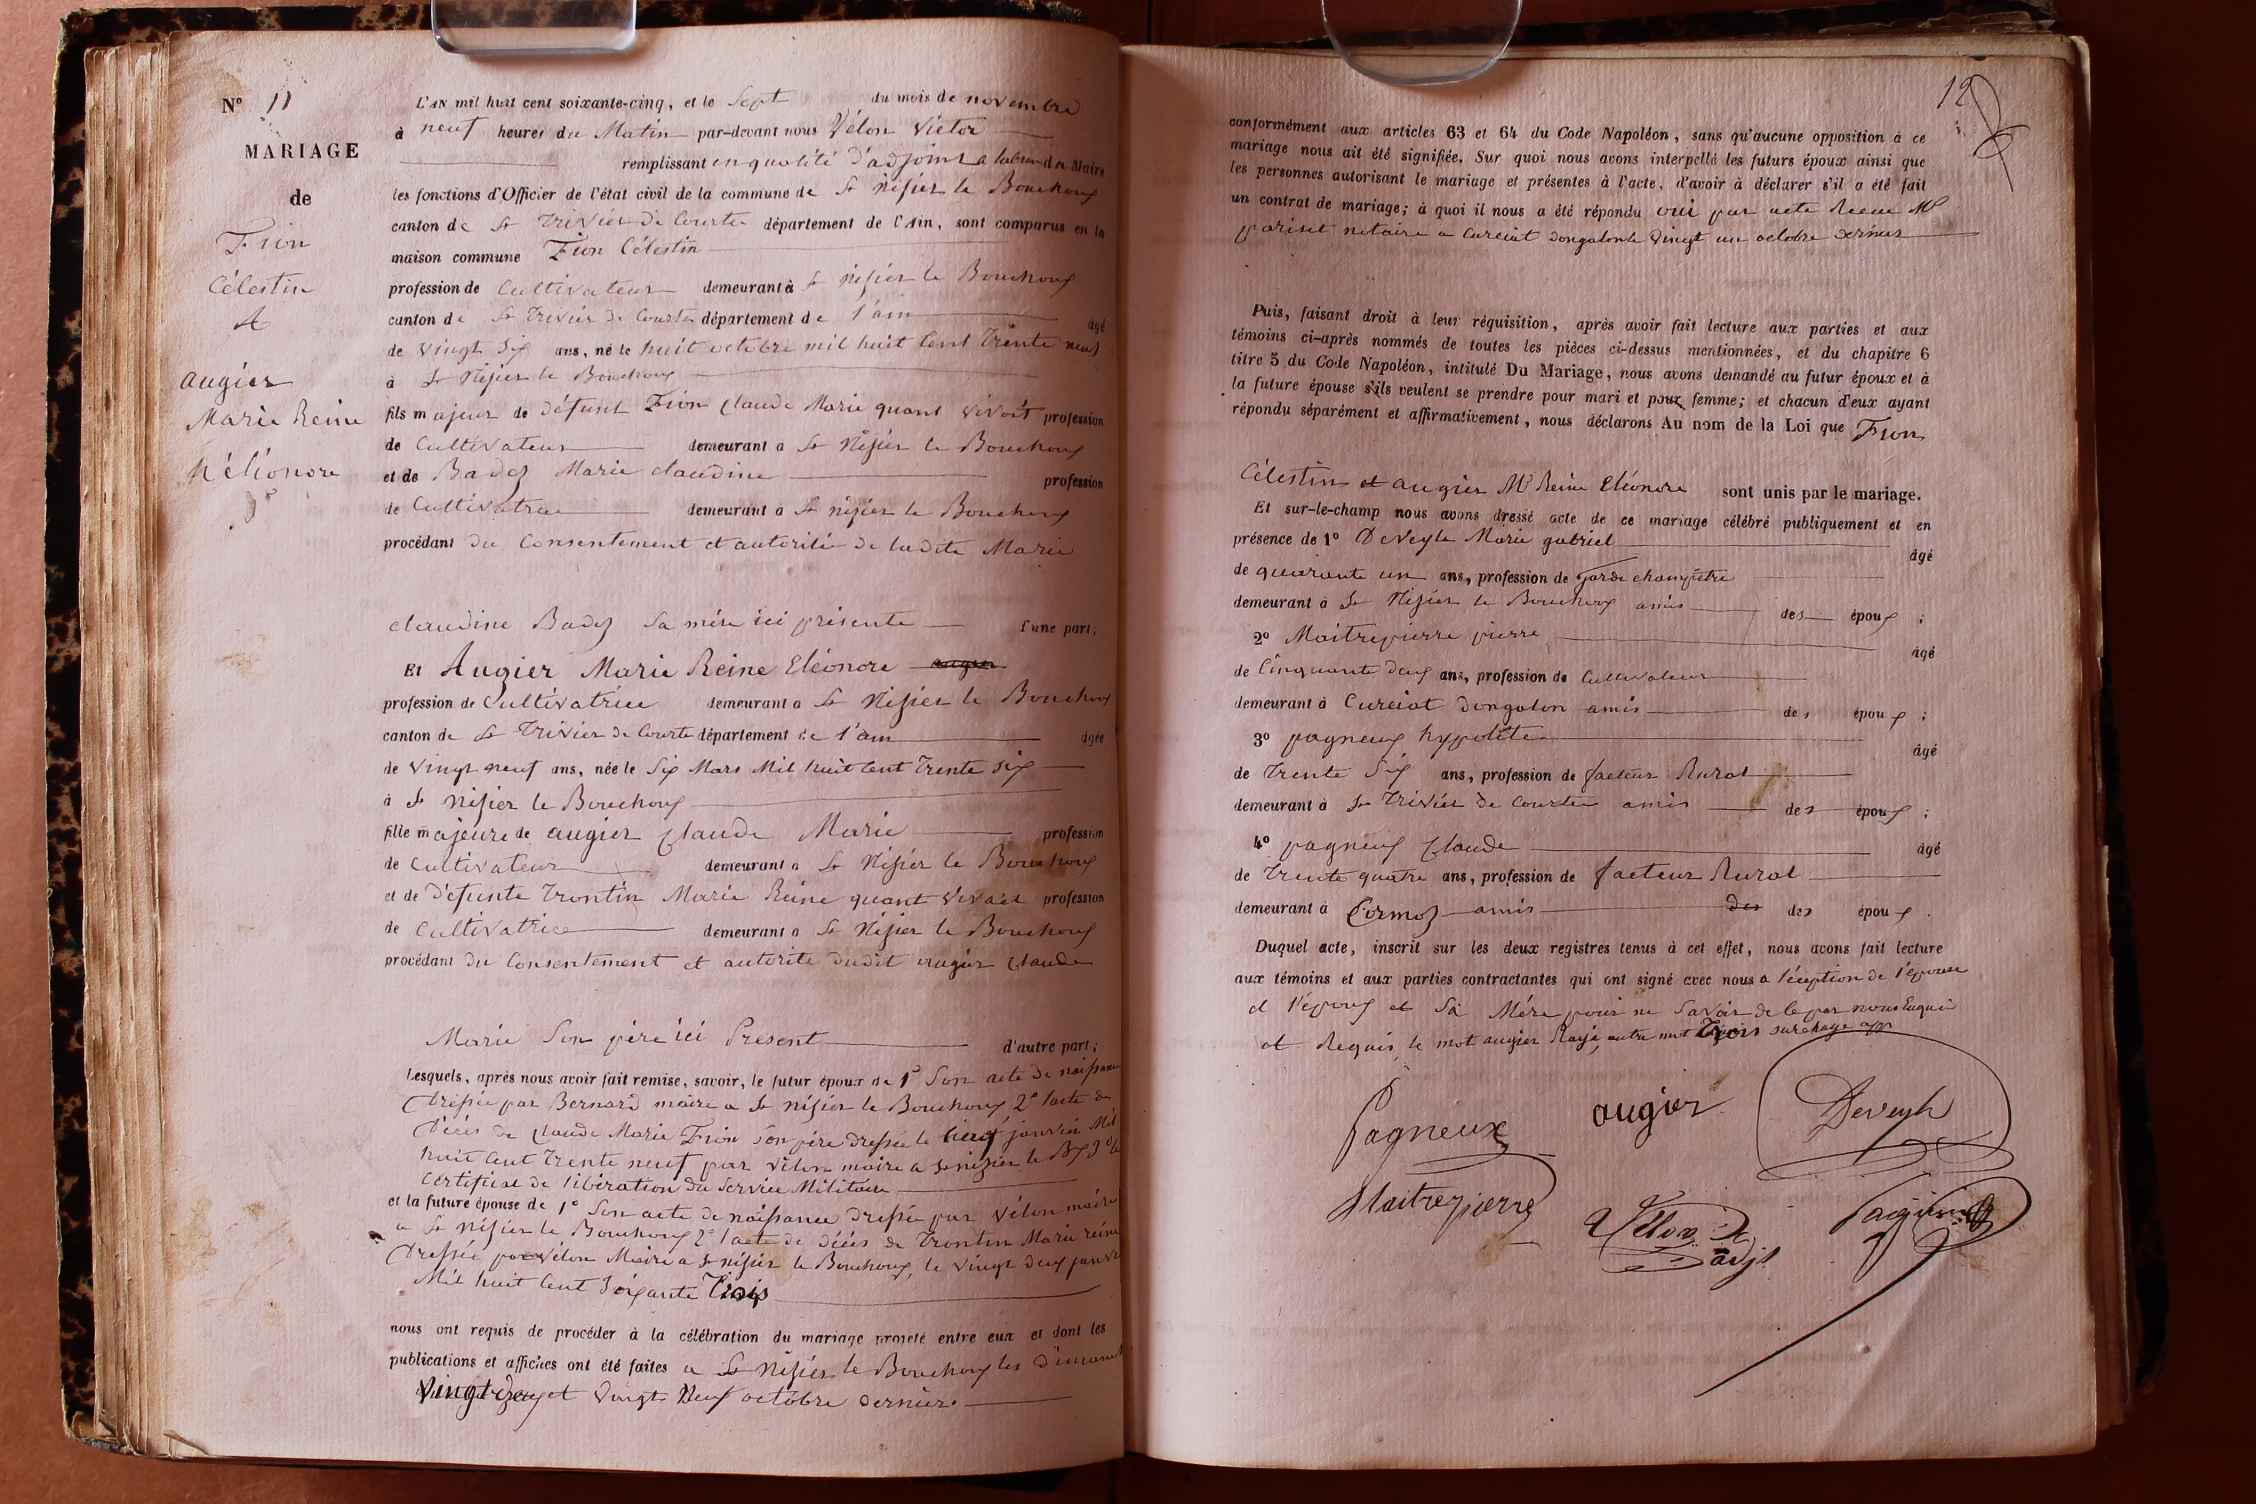 N° 11
MARIAGE
de
Fion
Célestin
&
augier
Marie Reine
Néléonore
L'AN mil huit cent soixante-cinq, et le Sept du mois de novembre
à neuf heures du Matin par-devant nous Vélon Victor
remplissant en qualité d'adjoint de Maire
les fonctions d'Officier de l'état civil de la commune de St Nisier le Bouchoux
canton de St Trivier de Courte département de l'Ain, sont comparus en la
maison commune Fion Célestin
profession de Cultivateur demeurant à St Nisier le Bouchoux
canton de St Trivier de Courte département de l'ain âgé
de vingt Six ans, né le huit octobre mil huit Cent Trente neuf
à St Nisier le Bouchoux
fils majeur de défunt Fion Claude Marie quant vivait profession
de Cultivateur demeurant à St Nisier le Bouchoux
et de Badez Marie claudine profession
de Cultivatrice demeurant à St nisier le Bouchoux
procédant du Consentement et autorité de ladite Marie
claudine Badez sa mère ici présente d'une part;
Et Augier Marie Reine Eléonore augier
profession de Cultivatrice demeurant à St Nisier le Bouchoux
canton de St Trivier de Courte département de l'ain âgée
de vingt neuf ans, née le Six Mars Mil huit Cent Trente Six
à St Nisier le Bouchoux
fille majeure de augier Claude Marie profession
de Cultivateur demeurant à St Nisier le Bouchoux
et de Défunte Trontin Marie Reine quant vivait profession
de Cultivatrice demeurant à St Nisier le Bouchoux
procédant du Consentement et autorité dudit augier Claude
Marie Son père ici Présent d'autre part;
Lesquels, après nous avoir fait remise, savoir, le futur époux de 1° Son acte de naissance
Dressée par Bernard maire a St nisier le Bouchoux 2° l'acte de
Décès de Claude Marie Fion Son père dressée le janvier Mil
huit Cent Trente neuf par vélon maire a St nisier le Bx 3° le
Certificat de libération du Service Militaire
et la future épouse de 1° Son acte de naissance dressée par Vélon maire
a St Nisier le Bouchoux 2° l'acte de décès de Trontin Marie reine
Dressée par Vélon Maire a St nisier le Bouchoux, le vingt deux janvier
Mil huit Cent Soixante Trois
nous ont requis de procéder à la célébration du mariage projeté entre eux et dont les
publications et affiches ont été faites a St Nisier le Bouchoux les dimanches
Vingt deux et vingt Neuf octobre dernier.
12
conformément aux articles 63 et 64 du Code Napoléon, sans qu'aucune opposition à ce
mariage nous ait été signifiée. Sur quoi nous avons interpellé les futurs époux ainsi que
les personnes autorisant le mariage et présentes à l'acte, d'avoir à déclarer s'il a été fait
un contrat de mariage; à quoi il nous a été répondu oui par acte Recue Me
pariset notaire a Curciat dongalon le vingt un octobre dernier
Puis, faisant droit à leur réquisition, après avoir fait lecture aux parties et aux
témoins ci-après nommés de toutes les pièces ci-dessus mentionnées, et du chapitre 6
titre 5 du Code Napoléon, intitulé Du Mariage, nous avons demandé au futur époux et à
la future épouse s'ils veulent se prendre pour mari et pour femme; et chacun d'eux ayant
répondu séparément et affirmativement, nous déclarons Au nom de la Loi que Fion
Célestin et augier Mie Reine Eléonore sont unis par le mariage.
Et sur-le-champ nous avons dressé acte de ce mariage célébré publiquement et en
présence de 1° Deveyle Marie gabriel âgé
de quarante un ans, profession de garde champêtre
demeurant à St Nisier le Bouchoux amis des époux ;
2° Maitrepierre pierre âgé
de Cinquante deux ans, profession de Cultivateur
demeurant à Curciat dongalon amis des époux ;
3° pagneux hypolite âgé
de Trente Six ans, profession de facteur Rural
demeurant à St Trivier de Courte amis des époux ;
4° pagneux Claude âgé
de Trente quatre ans, profession de facteur Rural
demeurant à Cormoz amis des des époux .
Duquel acte, inscrit sur les deux registres tenus à cet effet, nous avons fait lecture
aux témoins et aux parties contractantes qui ont signé avec nous a l'éception de l'épouse
et l'époux et Sa Mère pour ne Savoir de le par nous Enquis
et Requis, le mot augier Rayé, autre mot Trois surchage app
Pagneux augier Deveyle
Maitrepierre Vélon Vr adjt Pagneux